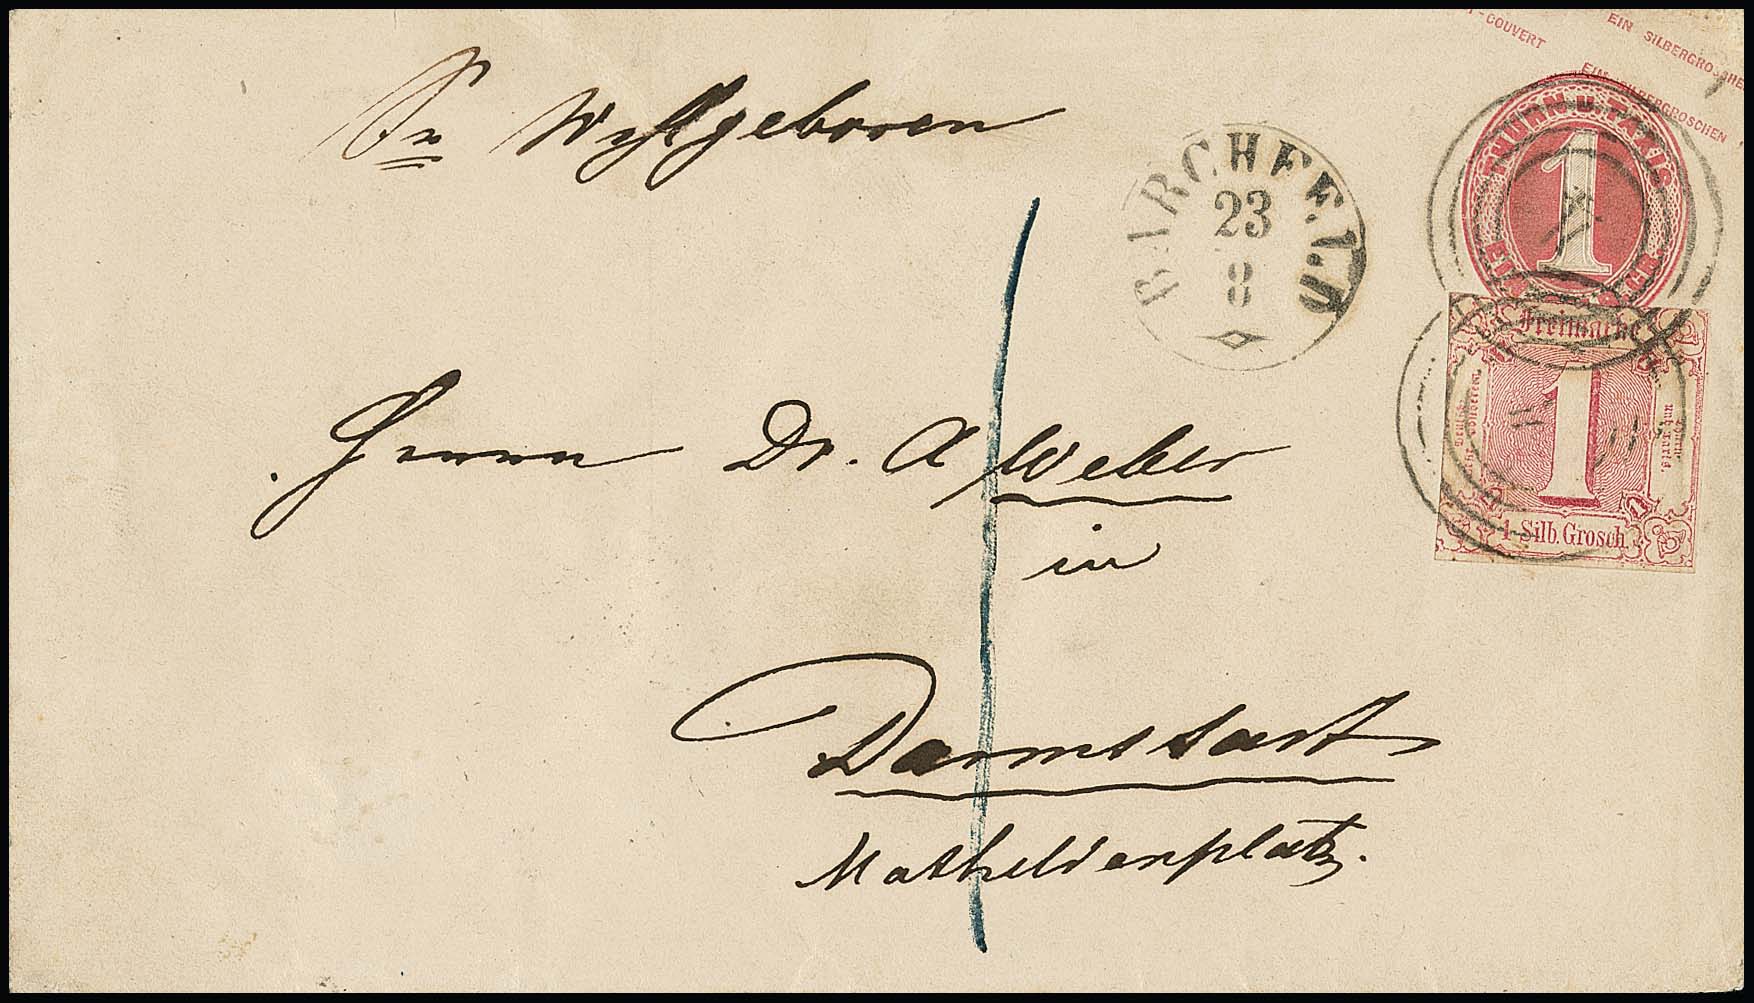 Sr Wohlgeboren
Herrn Dr. A Weber
in
Darmstadt
Mathildenplatz.
BARCHFELD
23
8
COUVERT
EIN SILBERGROSCHEN
EIN SILBERGROSCHEN
THURN U. TAXIS
1
Freimarke
1
1 Silb. Grosch.
Thurn
und Taxis.
1